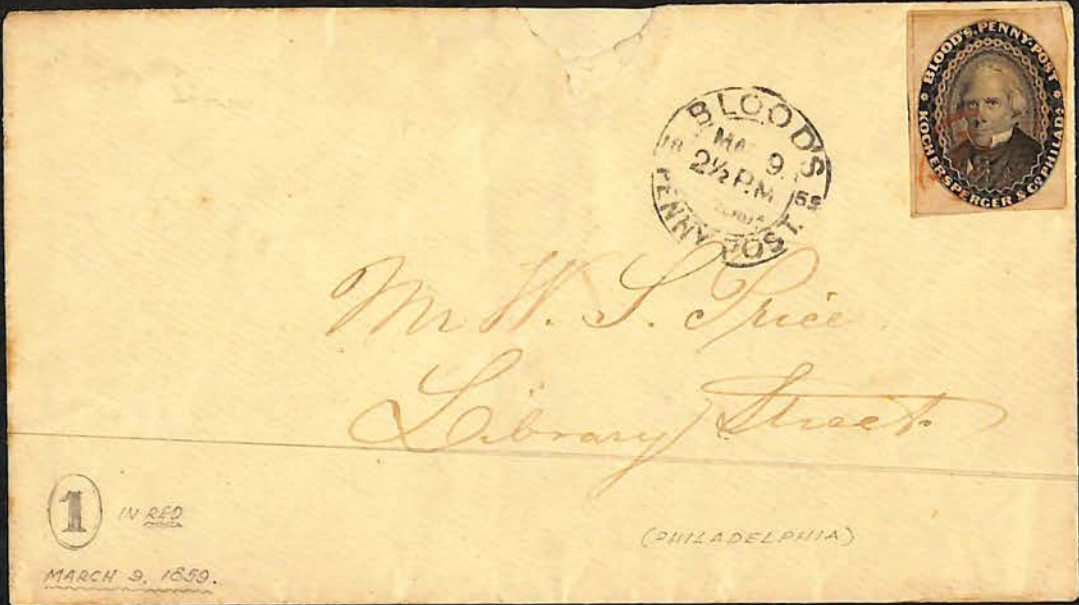 BLOOD'S. PENNY-POST
KOCHERSPERGER & Co. PHILADa.
BLOOD'S
9
2½ P.M
18
PENNY POST.
Mr W. S. Price
Library Street.
1
IN RED
(PHILADELPHIA)
MARCH 9, 1859.